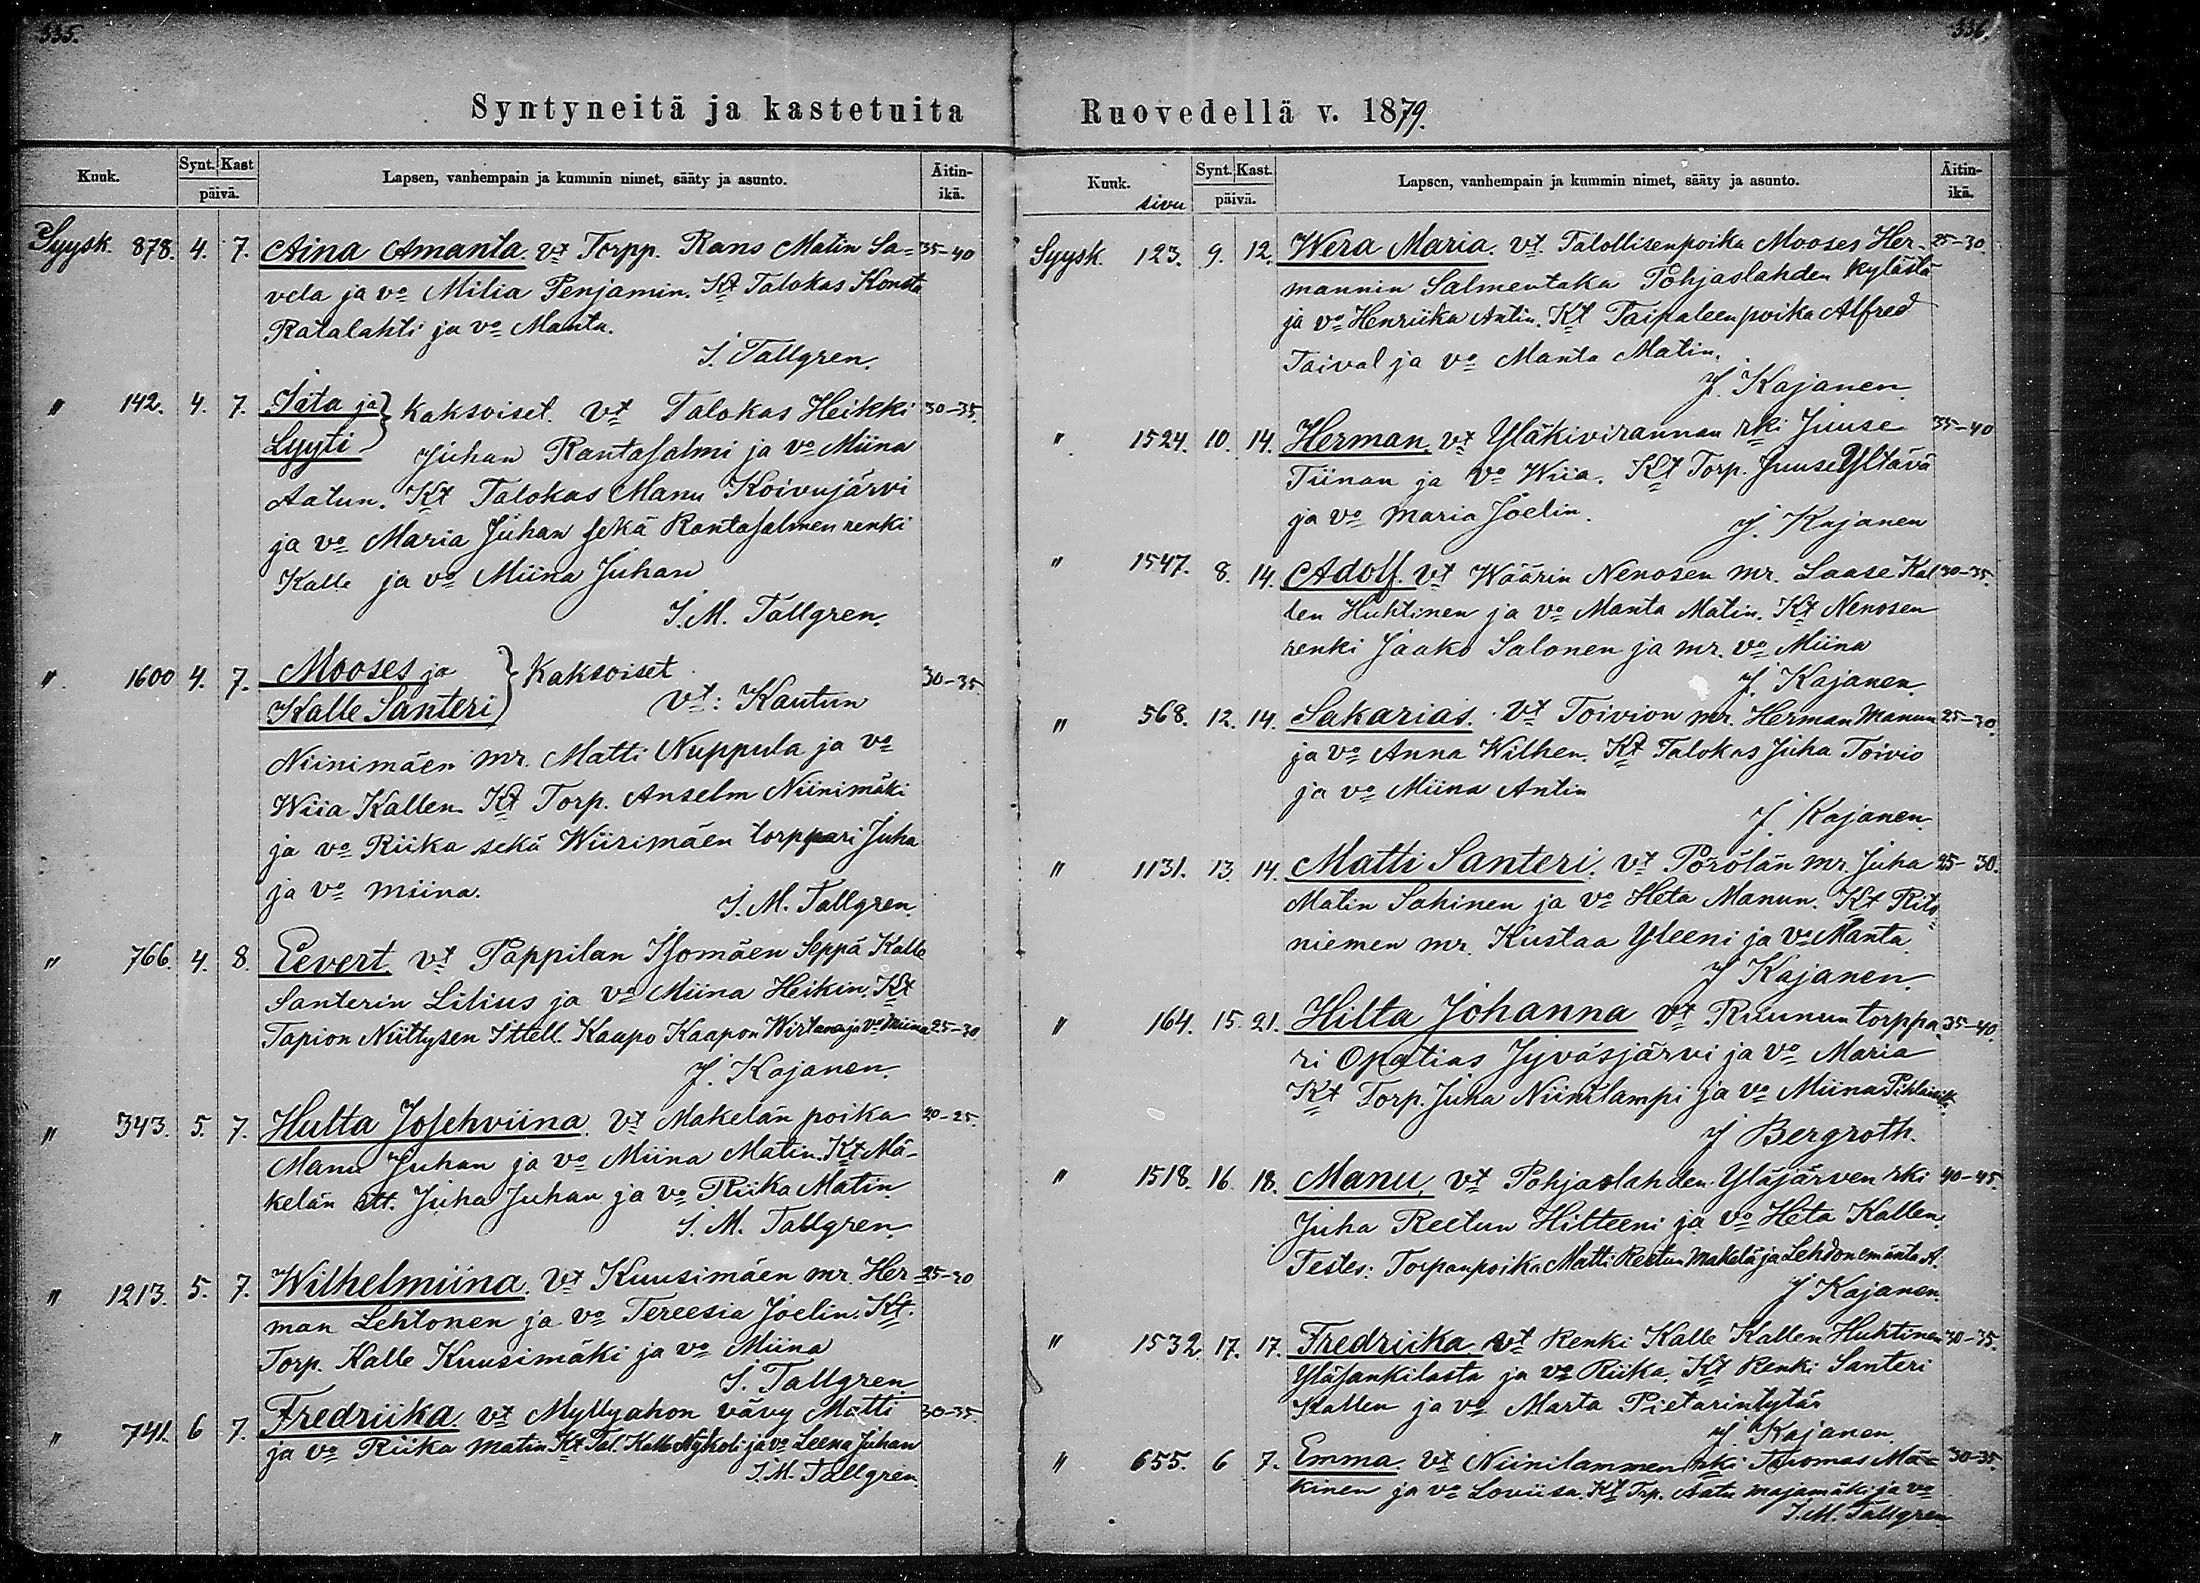 335.
Syntyneitä ja kastetuita
Kuuk.
Synt. Kast
päivä.
Lapsen, vanhempain ja kummin nimet, sääty ja asunto.
Äitin-
ikä.
Syysk. 878. 4. 7. Aina Amanta. vt Torpp. Rans Matin Sa= 35-40
vela ja vo Milia Penjamin. Kt Talokas Konsta
Ratalahti ja vo Manta.
I. Tallgren.
" 142. 4. 7. Iita ja } Kaksoiset. vt Talokas Heikki 30-35.
Lyyti Juhan Rantasalmi ja vo Miina
Aatun. Kt Talokas Manu Koivujärvi
ja vo Maria Juhan sekä Rantasalmen renki
Kalle ja vo Miina Juhan
I. M. Tallgren.
" 1600 4. 7. Mooses ja } Kaksoiset 30-35.
Kalle Santeri vt: Kautun
Niinimäen mr. Matti Nuppula ja vo
Wiia Kallen. Kt Torp. Anselm Niinimäki
ja vo Riika sekä Wiirimäen torppari Juha
ja vo Miina.
I. M. Tallgren.
" 766. 4. 8. Eevert. vt Pappilan Isomäen Seppä Kalle
Santerin Lilius ja vo Miina Heikin. Kt
Tapion Niittysen Ittell. Kaapo Kaapon Wirtanen ja vo Miina 25-30
J. Kajanen.
" 343. 5. 7. Hulta Josehviina. vt Makelän poika 20-25.
Manu Juhan ja vo Miina Matin. Kt Mä-
kelän itt. Juha Juhan ja vo Riika Matin.
I. M. Tallgren.
" 1213. 5. 7. Wilhelmiina. vt Kuusimäen mr. Her= 25-30
man Lehtonen ja vo Tereesia Joelin. Kt.
Torp. Kalle Kuusimäki ja vo Miina
I. Tallgren.
" 741. 6 7. Fredriika. vt Myllyahon vävy Matti 30-35.
ja vo Riika Matin Kt Tal. Kalle Nykoli ja vo Leena Juhan
I. M. Tallgren.
336.
Ruovedellä v. 1879.
Kuuk.
sivu
Synt. Kast.
päivä.
Lapsen, vanhempain ja kummin nimet, sääty ja asunto.
Äitin-
ikä.
Syysk. 123. 9. 12. Wera Maria. vt. Talollisenpoika Mooses Her- 25-30.
mannin Salmentaka Pohjaslahden kylästä
ja vo Henriika Antin. Kt Taipaleenpoika Alfred
Taival ja vo Manta Matin.
J. Kajanen.
" 1524. 10. 14. Herman. vt Yläkivirannan rki Juuse 35-40
Tiinan ja vo Wiia. Kt Torp. Juuse Yltävä
ja vo Maria Joelin.
J. Kajanen
" 1547. 8. 14. Adolf. vt Wäärin Nenosen mr. Laase Kal 30-35.
len Huhtinen ja vo Manta Matin. Kt Nenosen
renki Jaako Salonen ja mr. vo Miina
J. Kajanen.
" 568. 12. 14. Sakarias. vt Toivion mr. Herman Manun 25-30.
ja vo Anna Wilhen. Kt Talokas Juha Toivio
ja vo Miina Antin
J. Kajanen.
" 1131. 13. 14. Matti Santeri. vt Pörölän mr. Juha 25-30.
Matin Sahinen ja vo Heta Manun. Kt Rita
niemen mr. Kustaa Yleeni ja vo Manta.
J Kajanen.
" 164. 15. 21. Hilta Johanna vt Ruunun torppa 35-40.
ri Opatias Jyväsjärvi ja vo Maria
Kt Torp. Juha Niinilampi ja vo Miina
J Bergroth.
" 1518. 16. 18. Manu. vt Pohjaslahden Yläjärven rki 40-45.
Juha Reetun Hilteeni ja vo Heta Kallen.
Testes: Torpanpoika Matti Reetun Makelä ja Lehdon emäntä A.
J Kajanen.
" 1532. 17. 17. Fredriika. vt Renki Kalle Kallen Huhtinen 30-35.
Yläsankilasta ja vo Riika. Kt Renki Santeri
Kallen ja vo Marta Pietarintytär
J. Kajanen.
" 655. 6 7. Emma. vt Niinilammen rki Tuomas Mä= 30-35.
kinen ja vo Loviisa. Kt Trp. Aatu Majamäki ja vo
I. M. Tallgren